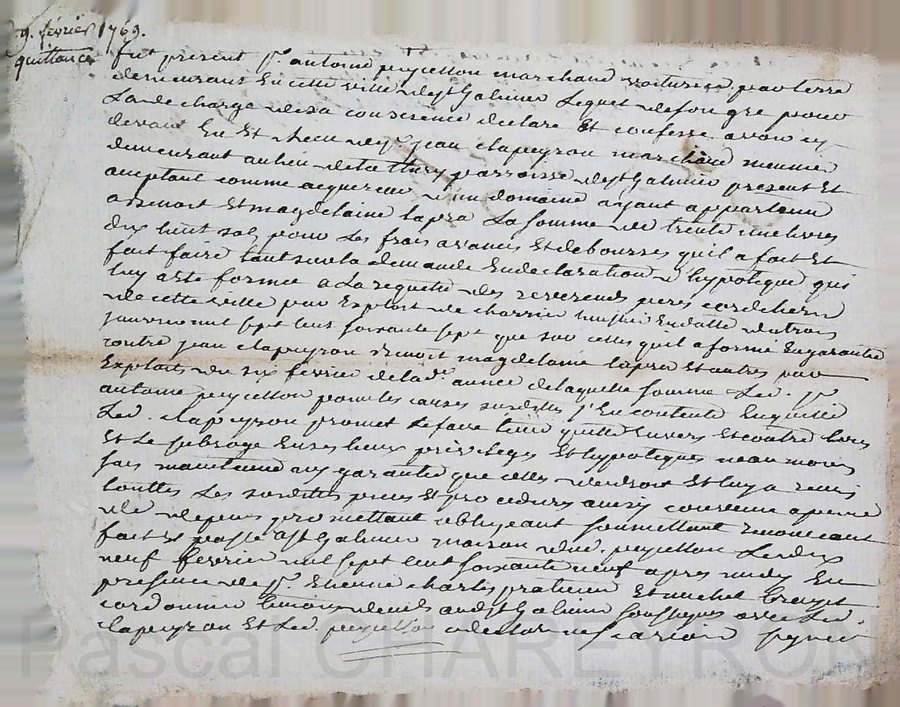 9. février 1769.
quittance
fut present sr. antoine peycellon marchand voiturier par terre
demeurant en cette ville de st Galmier lequel de son gre pour
la decharge de sa conscience declare et confesse avoir cy
devant eu et receu de sr. jean clapeyron marchand meunier
demeurant au lieu de la thiery parroisse de st Galmier present et
acceptant comme acquereur d'un domaine ayant appartenu
a benoit et magdelaine lapra la somme de trente une livres
dix huit sols pour les frais avancés et debourses quil a fait et
fait faire tant sur la demande en declaration d'hypoteque qui
luy a ete formée a la requete des reverends peres cordeliers
de cette ville par exploit de charrin huissier en datte du trois
janvier mil sept cent soixante sept que sur celles quil a formé en garantie
contre jean clapeyron benoit magdelaine lapra et autres par
exploits du six fevrier de lad. année de laquelle somme led. sr.
antoine peycellon pour les causes susdittes s'en contente en quitte
led. clapeyron promet le faire tenir quitte envers et contre tous
et le subroge en ses lieux privileges et hypoteques neanmoins
sans maintenue ny garantie que celles de droit et luy a remis
touttes les susdittes pieces et procedures ainsy convenu a peine
de depens promettant obligeant soumettant renoncant
fait et passé a st Galmier maison dud. peycellon le dix
neuf fevrier mil sept cent soixante neuf apres midy en
presence de sr. Etienne charles praticien et michel
cordonnier temoins demts aud. st Galmier soussignés avec led.
clapeyron et led. peycellon a declaré ne scavoir signer
Pascal CHAREYRON